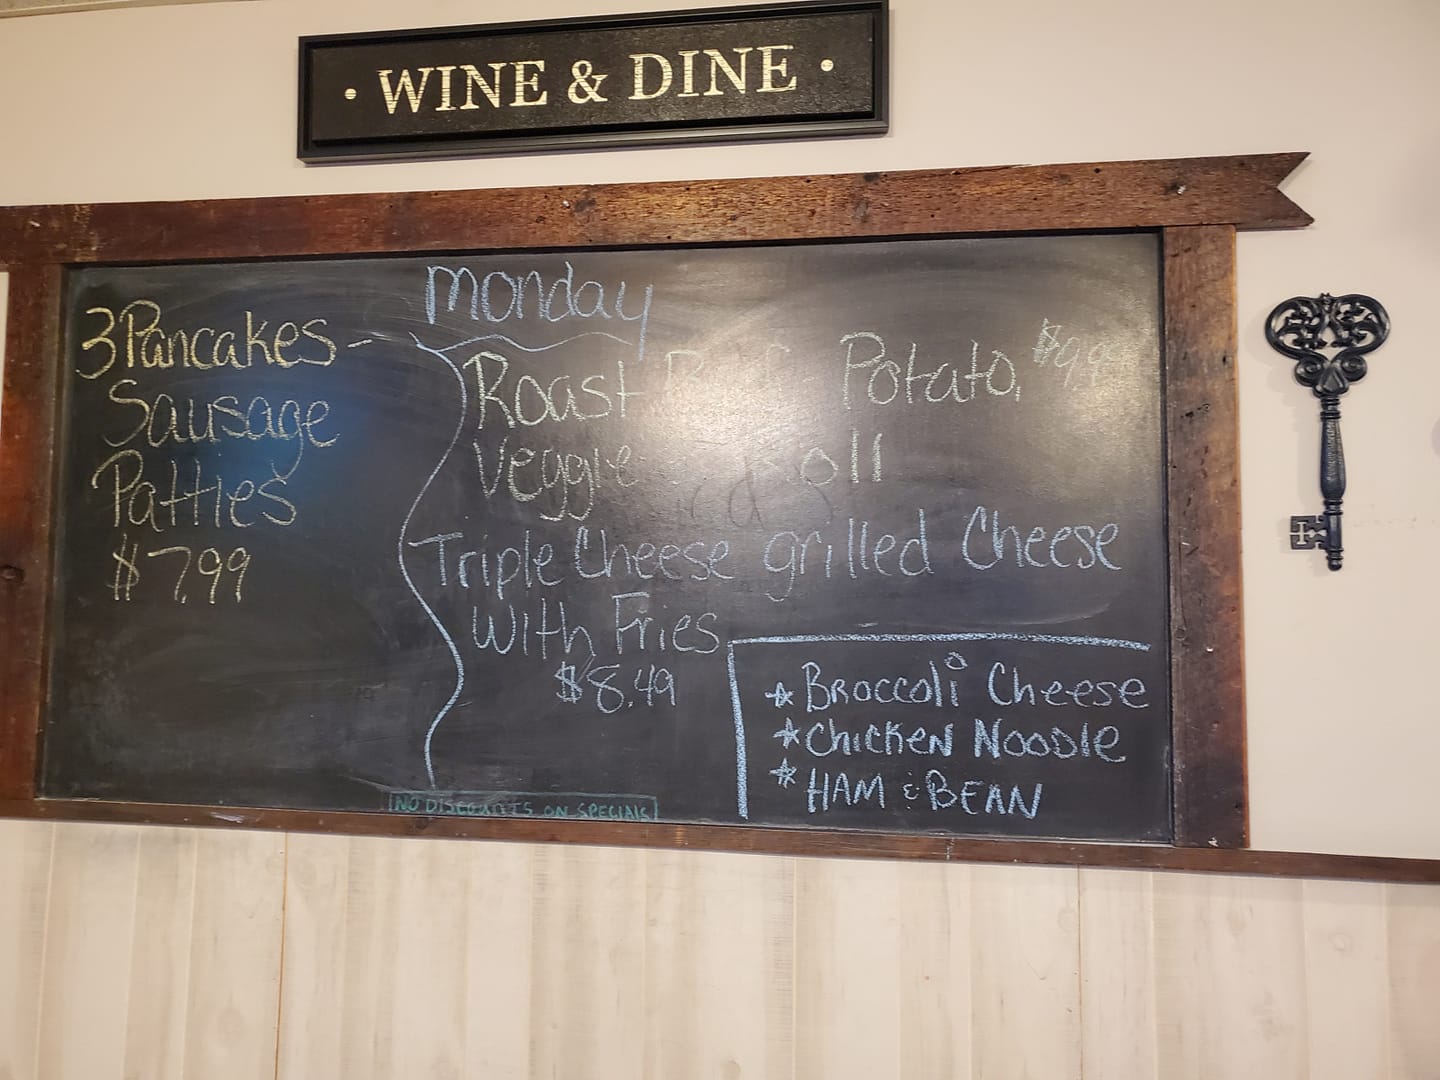 • WINE & DINE •
Monday
3 Pancakes -
Sausage
Patties
$7.99
Roast Beef - Potato, $9.99
Veggie Roll
Triple Cheese grilled Cheese
With Fries
$8.49
☆ Broccoli Cheese
☆ Chicken Noodle
☆ HAM & BEAN
NO DISCOUNTS ON SPECIALS